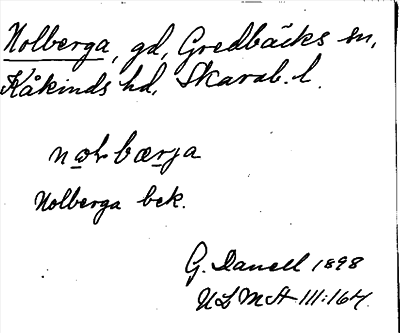 Nolberga, gd, Gredbäcks sn,
Kåkinds hd, Skarab. l.
Nolberga bek.
G. Danell 1898
ULMA III:164.